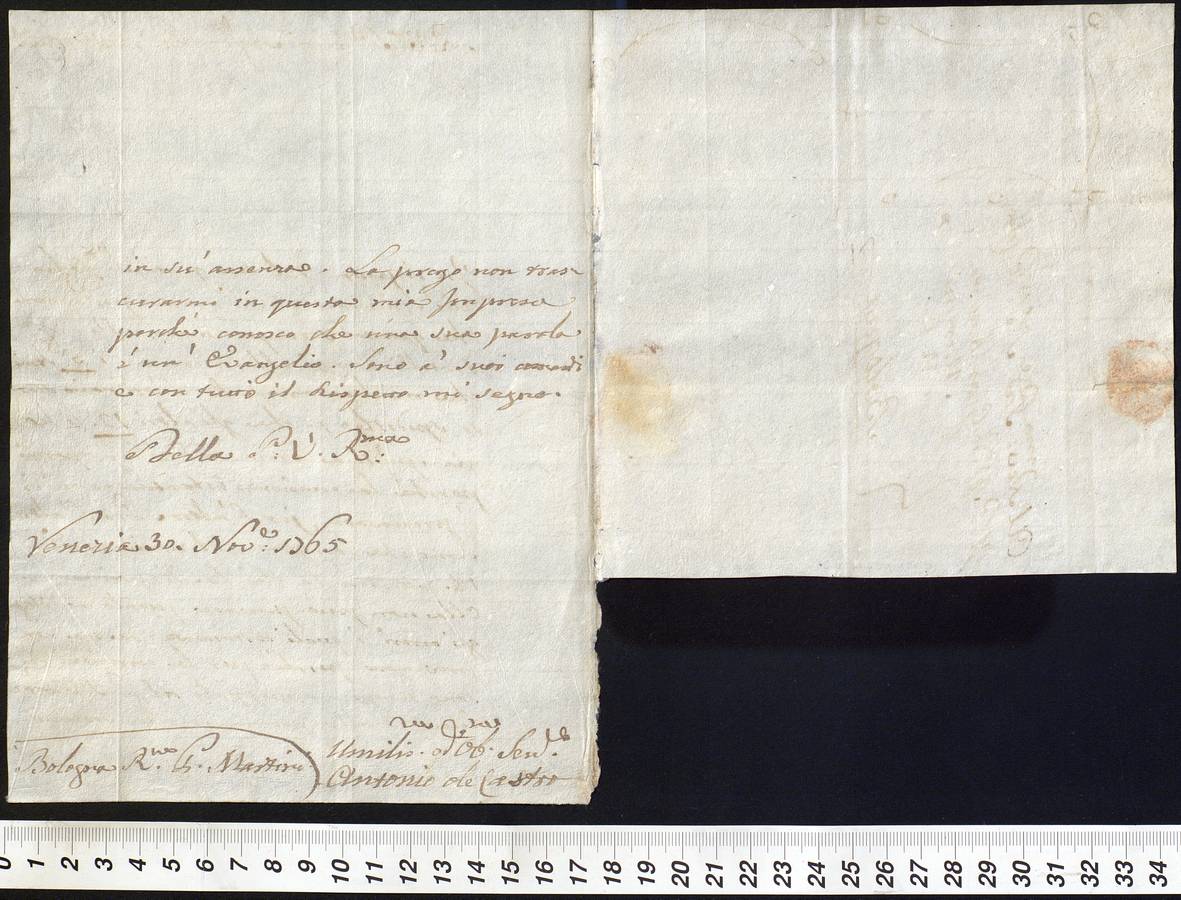 in su' assenza. La prego non tras-
curarmi in questa mia Impresa
perché conosco che una sua parola
è un' Evangelio. Sono a' suoi comandi
e con tutto il Rispetto mi segno.
Della P: V. R:ma
Venezia 30. Nov:e 1765
Umilis:mo ed Ob:mo Serv:e
Bologna R:mo P. Martini
Antonio de Castro
0 1 2 3 4 5 6 7 8 9 10 11 12 13 14 15 16 17 18 19 20 21 22 23 24 25 26 27 28 29 30 31 32 33 34